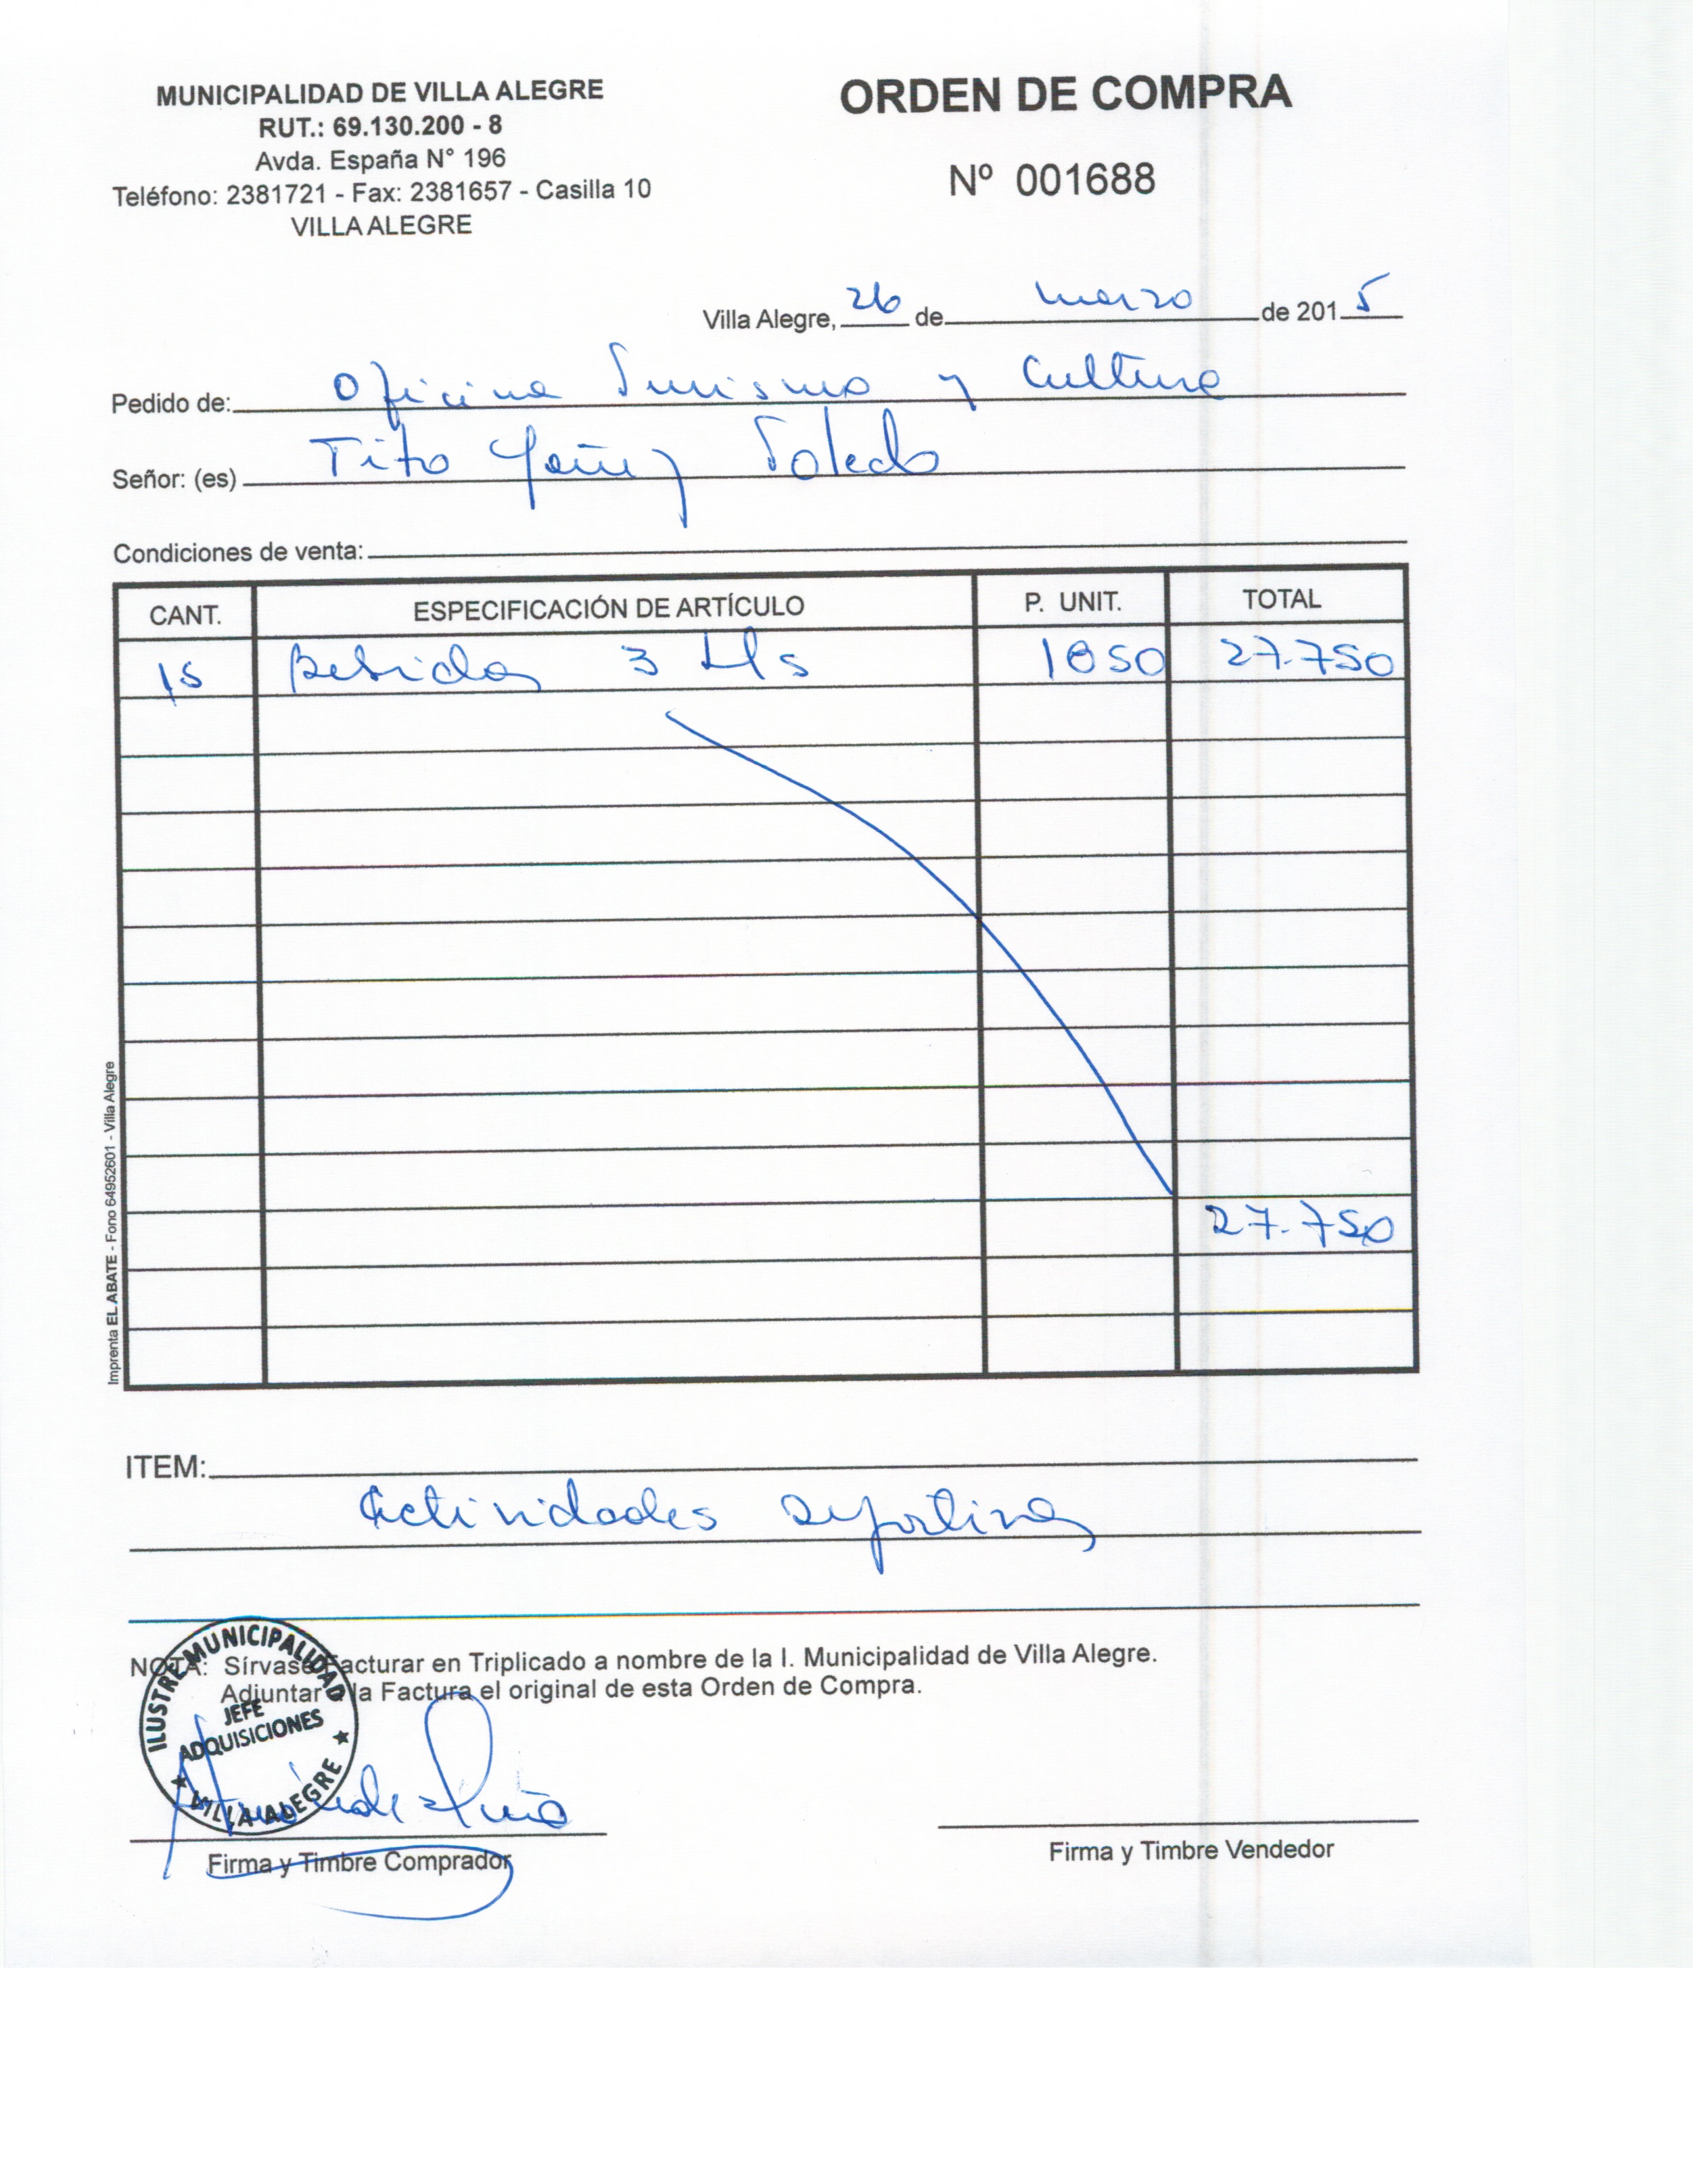 MUNICIPALIDAD DE VILLA ALEGRE
RUT.: 69.130.200 - 8
Avda. España N° 196
Teléfono: 2381721 - Fax: 2381657 - Casilla 10
VILLA ALEGRE
ORDEN DE COMPRA
Nº 001688
Villa Alegre, 26 de marzo de 2015
Pedido de: Oficina Turismo y Cultura
Señor: (es) Tito Yañez Toledo
Condiciones de venta:
CANT. ESPECIFICACIÓN DE ARTÍCULO P. UNIT. TOTAL
15 Bebidas 3 Lts 1850 27.750
27.750
Imprenta EL ABATE - Fono 64952601 - Villa Alegre
ITEM:
Actividades deportivas
NOTA: Sírvase Facturar en Triplicado a nombre de la I. Municipalidad de Villa Alegre.
Adjuntar a la Factura el original de esta Orden de Compra.
ILUSTRE MUNICIPALIDAD
JEFE
ADQUISICIONES
VILLA ALEGRE
Firma y Timbre Comprador
Firma y Timbre Vendedor